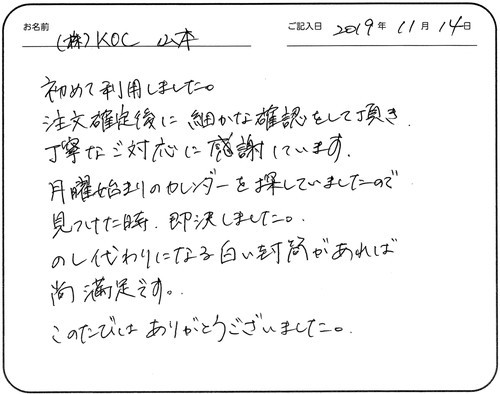 お名前 (株)KOC 山本 ご記入日 2019年 11月 14日
初めて利用しました。
注文確定後に 細かな確認をして頂き.
丁寧なご対応に 感謝しています.
月曜始まりのカレンダーを探していましたので
見つけた時、即決しました。
のし代わりになる白い封筒があれば
尚満足です。
このたびは ありがとうございました。